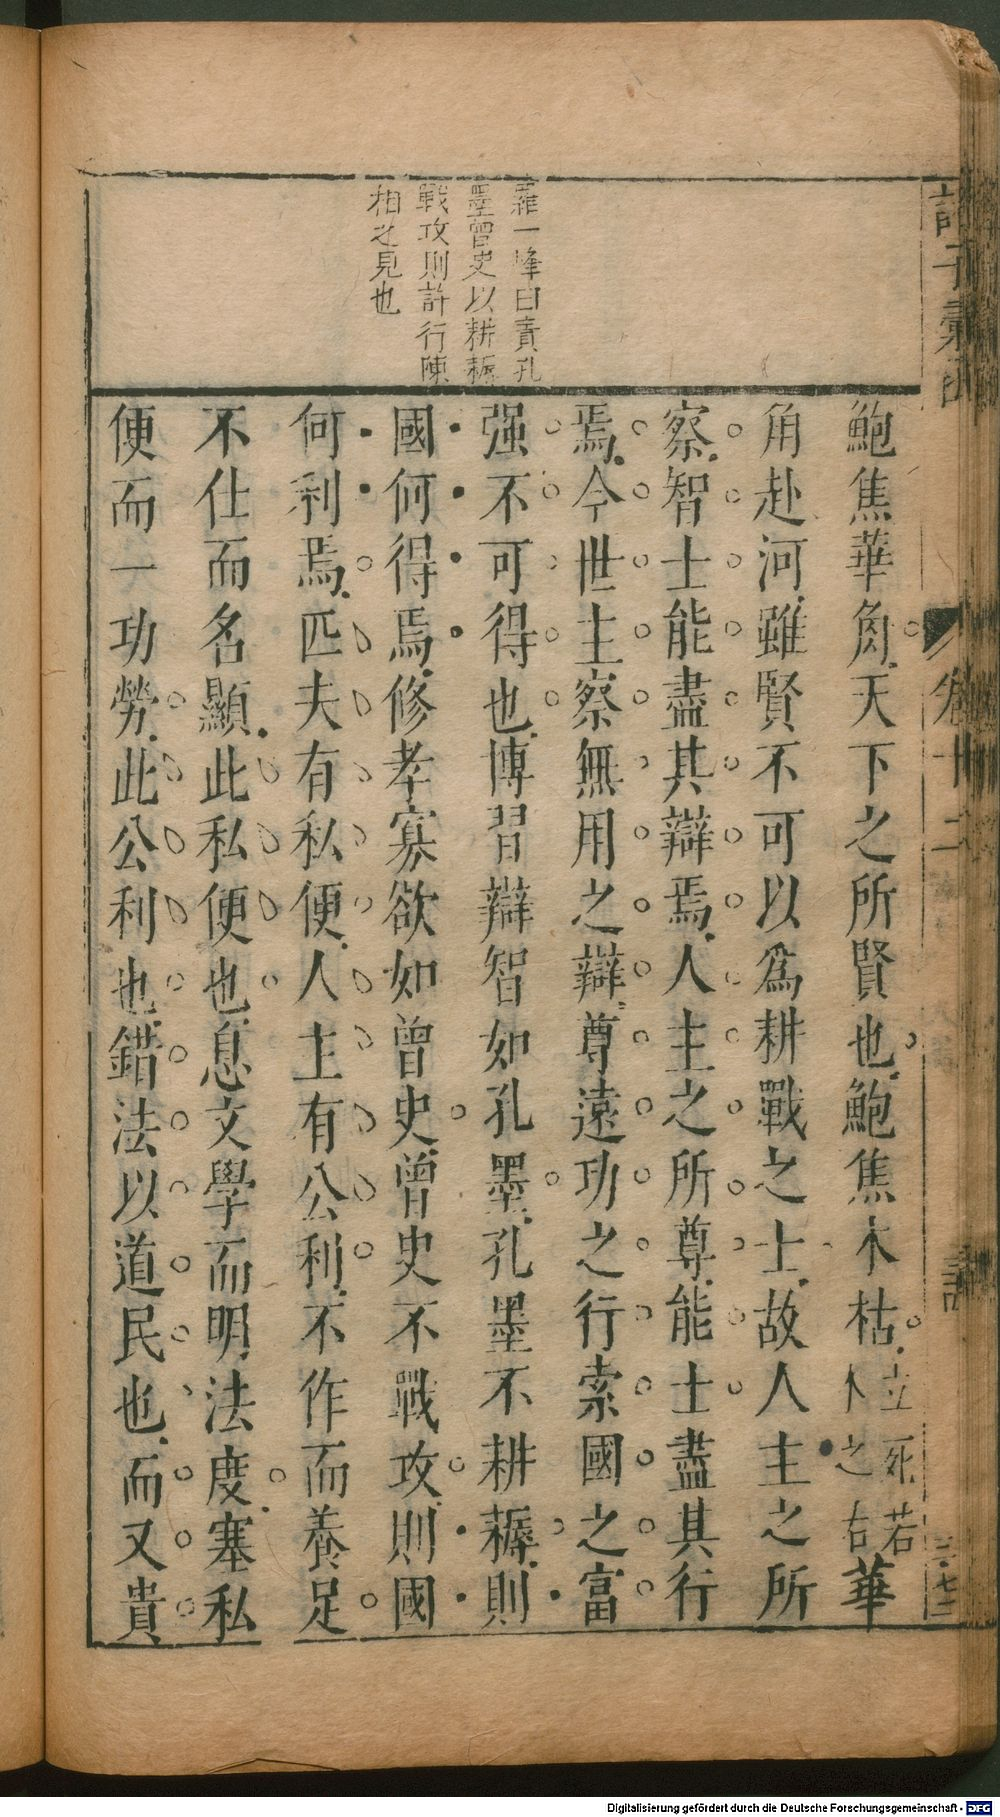 羅一峰曰責孔
墨曾史以耕耨
戰攻則許行陳
相之見也
鮑焦華角天下之所賢也鮑焦木枯立死若木之右華
角赴河雖賢不可以爲耕戰之士故人主之所
察智士能盡其辯焉人主之所尊能士盡其行
焉今世主察無用之辯尊遠功之行索國之富
强不可得也博習辯智如孔墨孔墨不耕耨則
國何得焉修孝寡欲如曾史曾史不戰攻則國
何利焉匹夫有私便人主有公利不作而養足
不仕而名顯此私便也息文學而明法度塞私
便而一功勞此公利也錯法以道民也而又貴
卷十二
Digitalisierung gefördert durch die Deutsche Forschungsgemeinschaft - DFG